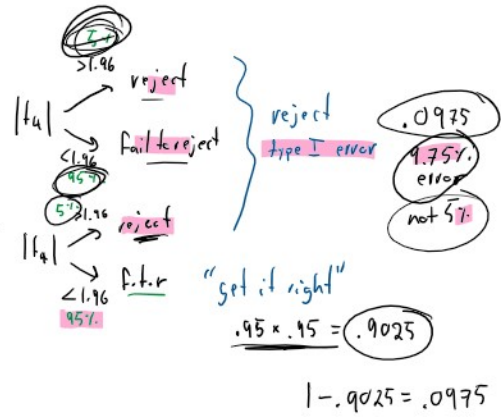 5%
>1.96
reject
|t₄|
fail to reject
<1.96
95%
5% >1.96
reject
|t₉|
f.t.r
<1.96
95%
reject
type I error
.0975
9.75%
error
not 5%
"get it right"
.95 × .95 = .9025
1 - .9025 = .0975